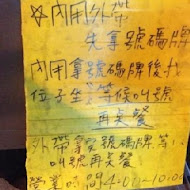 ☆內用外帶
先拿號碼牌
內用拿號碼牌後找
位子坐等候叫號
再點餐
外帶拿號碼牌等
叫號再點餐
營業時間4:00~10:00